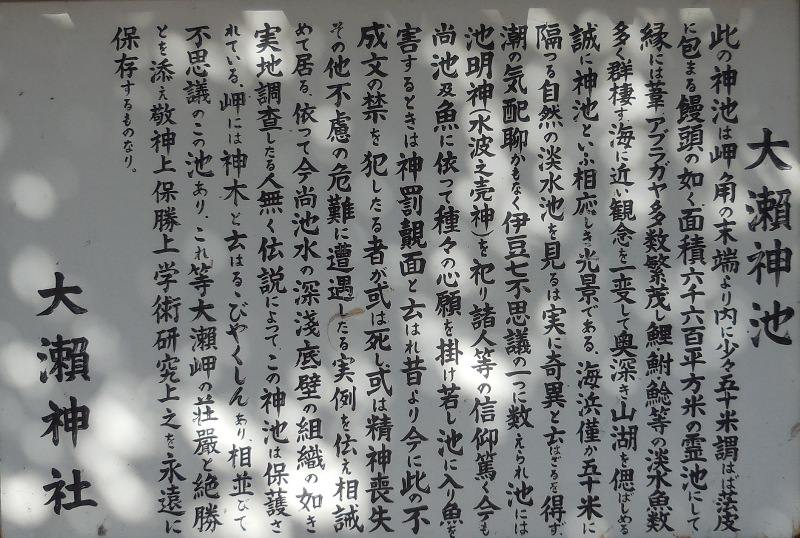 大瀬神池
此の神池は岬角の末端より内に少々五十米謂はば茲皮
に包まる饅頭の如く面積六千六百平方米の霊池にして
縁には葦アブラガヤ多数繁茂し鯉鮒鯰等の淡水魚数
多く群棲す海に近い観念を一変して奥深き山湖を偲ばしめる
誠に神池といふ相応しき光景である、海浜僅か五十米に
隔つる自然の淡水池を見るは実に奇異と云はざるを得ず、
潮の気配聊かもなく伊豆七不思議の一つに数えられ池には
池明神(水波之売神)を祀り諸人等の信仰篤く今も
尚池及魚に依って種々の心願を掛け若し池に入り魚を
害するときは神罰覿面と云はれ昔より今に此の不
成文の禁を犯したる者が或は死し或は精神喪失
その他不慮の危難に遭遇したる実例を伝え相誡
めて居る、依って今尚池水の深浅底壁の組織の如き
実地調査したる人無く伝説によって、この神池は保護さ
れている、岬には神木と云はる、びやくしんあり、相並びて
不思議のこの池あり、これ等大瀬岬の荘厳と絶勝
とを添え敬神上保勝上学術研究上之を永遠に
保存するものなり。
大瀬神社